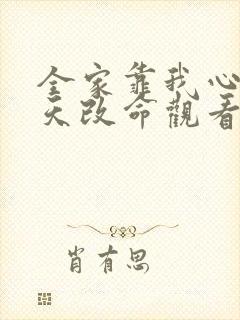 全家靠我心
天改命觀看
肖有思